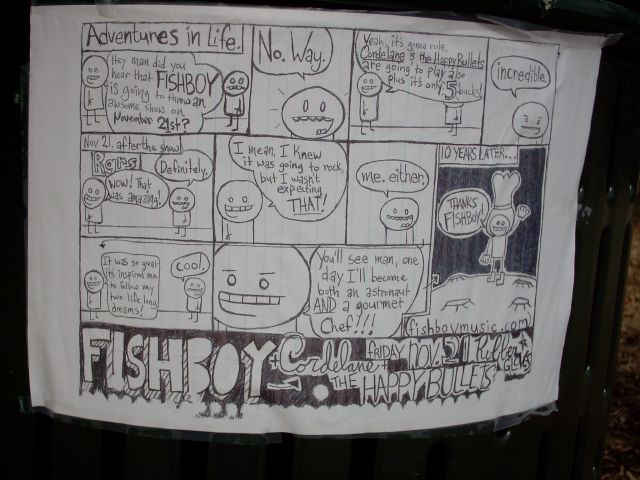 Adventures in Life.
Hey man did you
hear that FISHBOY
is going to throw an
awsome show on
November 21st?
No. Way.
Yeah, it's gonna rule,
Cordelane & the Happy Bullets
are going to play also
plus it's only 5 bucks!
incredible.
Nov 21. after the show.
WOW! That
was amazing!
Definitely.
I mean, I knew
it was going to rock,
but I wasn't
expecting
THAT!
me. either.
10 YEARS LATER...
THANKS
FISHBOY!
It was so great
its inspired me
to follow my
two life long
dreams!
Cool.
You'll see man, one
day I'll become
both an astronaut
AND a gourmet
Chef!!!
(fishboymusic.com)
FISHBOY
+ Cordelane +
THE HAPPY BULLETS
FRIDAY NOV. 21